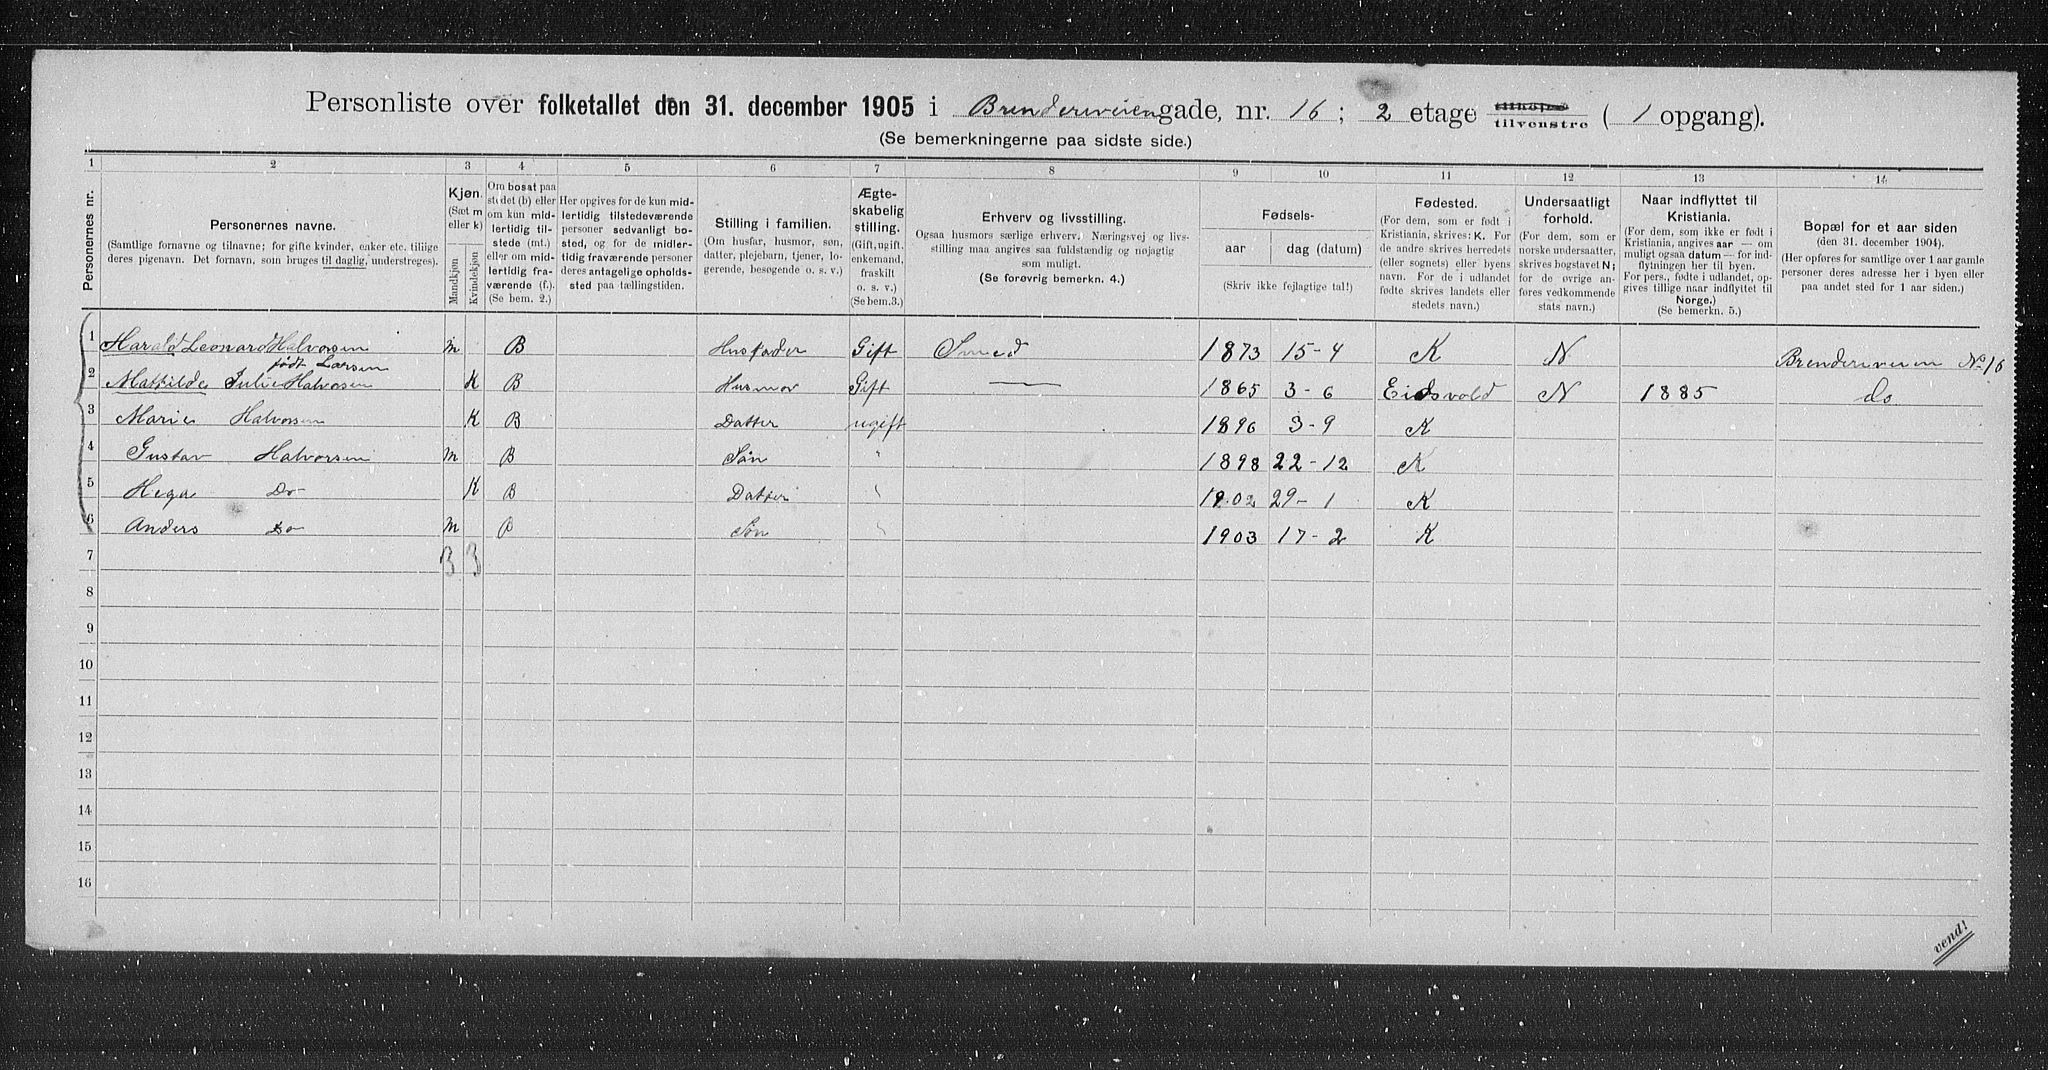 Personliste over folketallet den 31. december 1905 i Brenderiveiengade, nr. 16; 2 etage tilhøjre tilvenstre ( 1 opgang).
(Se bemerkningerne paa sidste side.)
1 2 3 4 5 6 7 8 9 10 11 12 13 14
Personernes nr.
Personernes navne.
(Samtlige fornavne og tilnavne; for gifte kvinder, enker etc. tillige deres pigenavn. Det fornavn, som bruges til daglig, understreges).
Kjøn.
(Sæt m eller k)
Mandkjøn
Kvindekjøn
Om bosat paa stedet (b) eller om kun midlertidig tilstede (mt.) eller om midlertidig fraværende (f.). (Se bem. 2.)
Her opgives for de kun midlertidig tilstedeværende personer sedvanligt bosted, og for de midlertidig fraværende personer deres antagelige opholdssted paa tællingstiden.
Stilling i familien.
(Om husfar, husmor, søn, datter, plejebarn, tjener, logerende, besøgende o. s. v.)
Ægteskabelig stilling.
(Gift, ugift, enkemand, fraskilt o. s. v.)
(Se bem.3.)
Erhverv og livsstilling.
Ogsaa husmors særlige erhverv. Næringsvej og livsstilling maa angives saa fuldstændig og nøjagtig som muligt.
(Se forøvrig bemerkn. 4.)
Fødsels-
aar dag (datum)
(Skriv ikke fejlagtige tal!)
Fødested.
(For dem, som er født i Kristiania, skrives: K. For de andre skrives herredets (eller sognets) eller byens navn. For de i udlandet fødte skrives landets eller stedets navn.)
Undersaatligt forhold.
(For dem, som er norske undersaatter, skrives bogstavet N; for de øvrige anføres vedkommende stats navn.)
Naar indflyttet til Kristiania.
(For dem, som ikke er født i Kristiania, angives aar — om muligt ogsaa datum — for indflytningen her til byen. For pers., fødte i udlandet, opgives tillige naar indflyttet til Norge.)
(Se bemerkn. 5.)
Bopæl for et aar siden
(den 31. december 1904).
(Her opføres for samtlige over 1 aar gamle personer deres adresse her i byen eller paa andet sted for 1 aar siden.)
1 Harald Leonard Halvorsen m B Husfader Gift Smed 1873 15-4 K N Brenderiveien No 16
født Larsen
2 Mathilde Julie Halvorsen K B Husmor Gift — 1865 3-6 Eidsvold N 1885 do
3 Marie Halvorsen K B Datter ugift 1896 3-9 K
4 Gustav Halvorsen m B Søn " 1898 22-12 K
5 Do K B Datter " 1902 29-1 K
6 Anders Do m B Søn " 1903 17-2 K
7 3 3
8
9
10
11
12
13
14
15
16
vend!